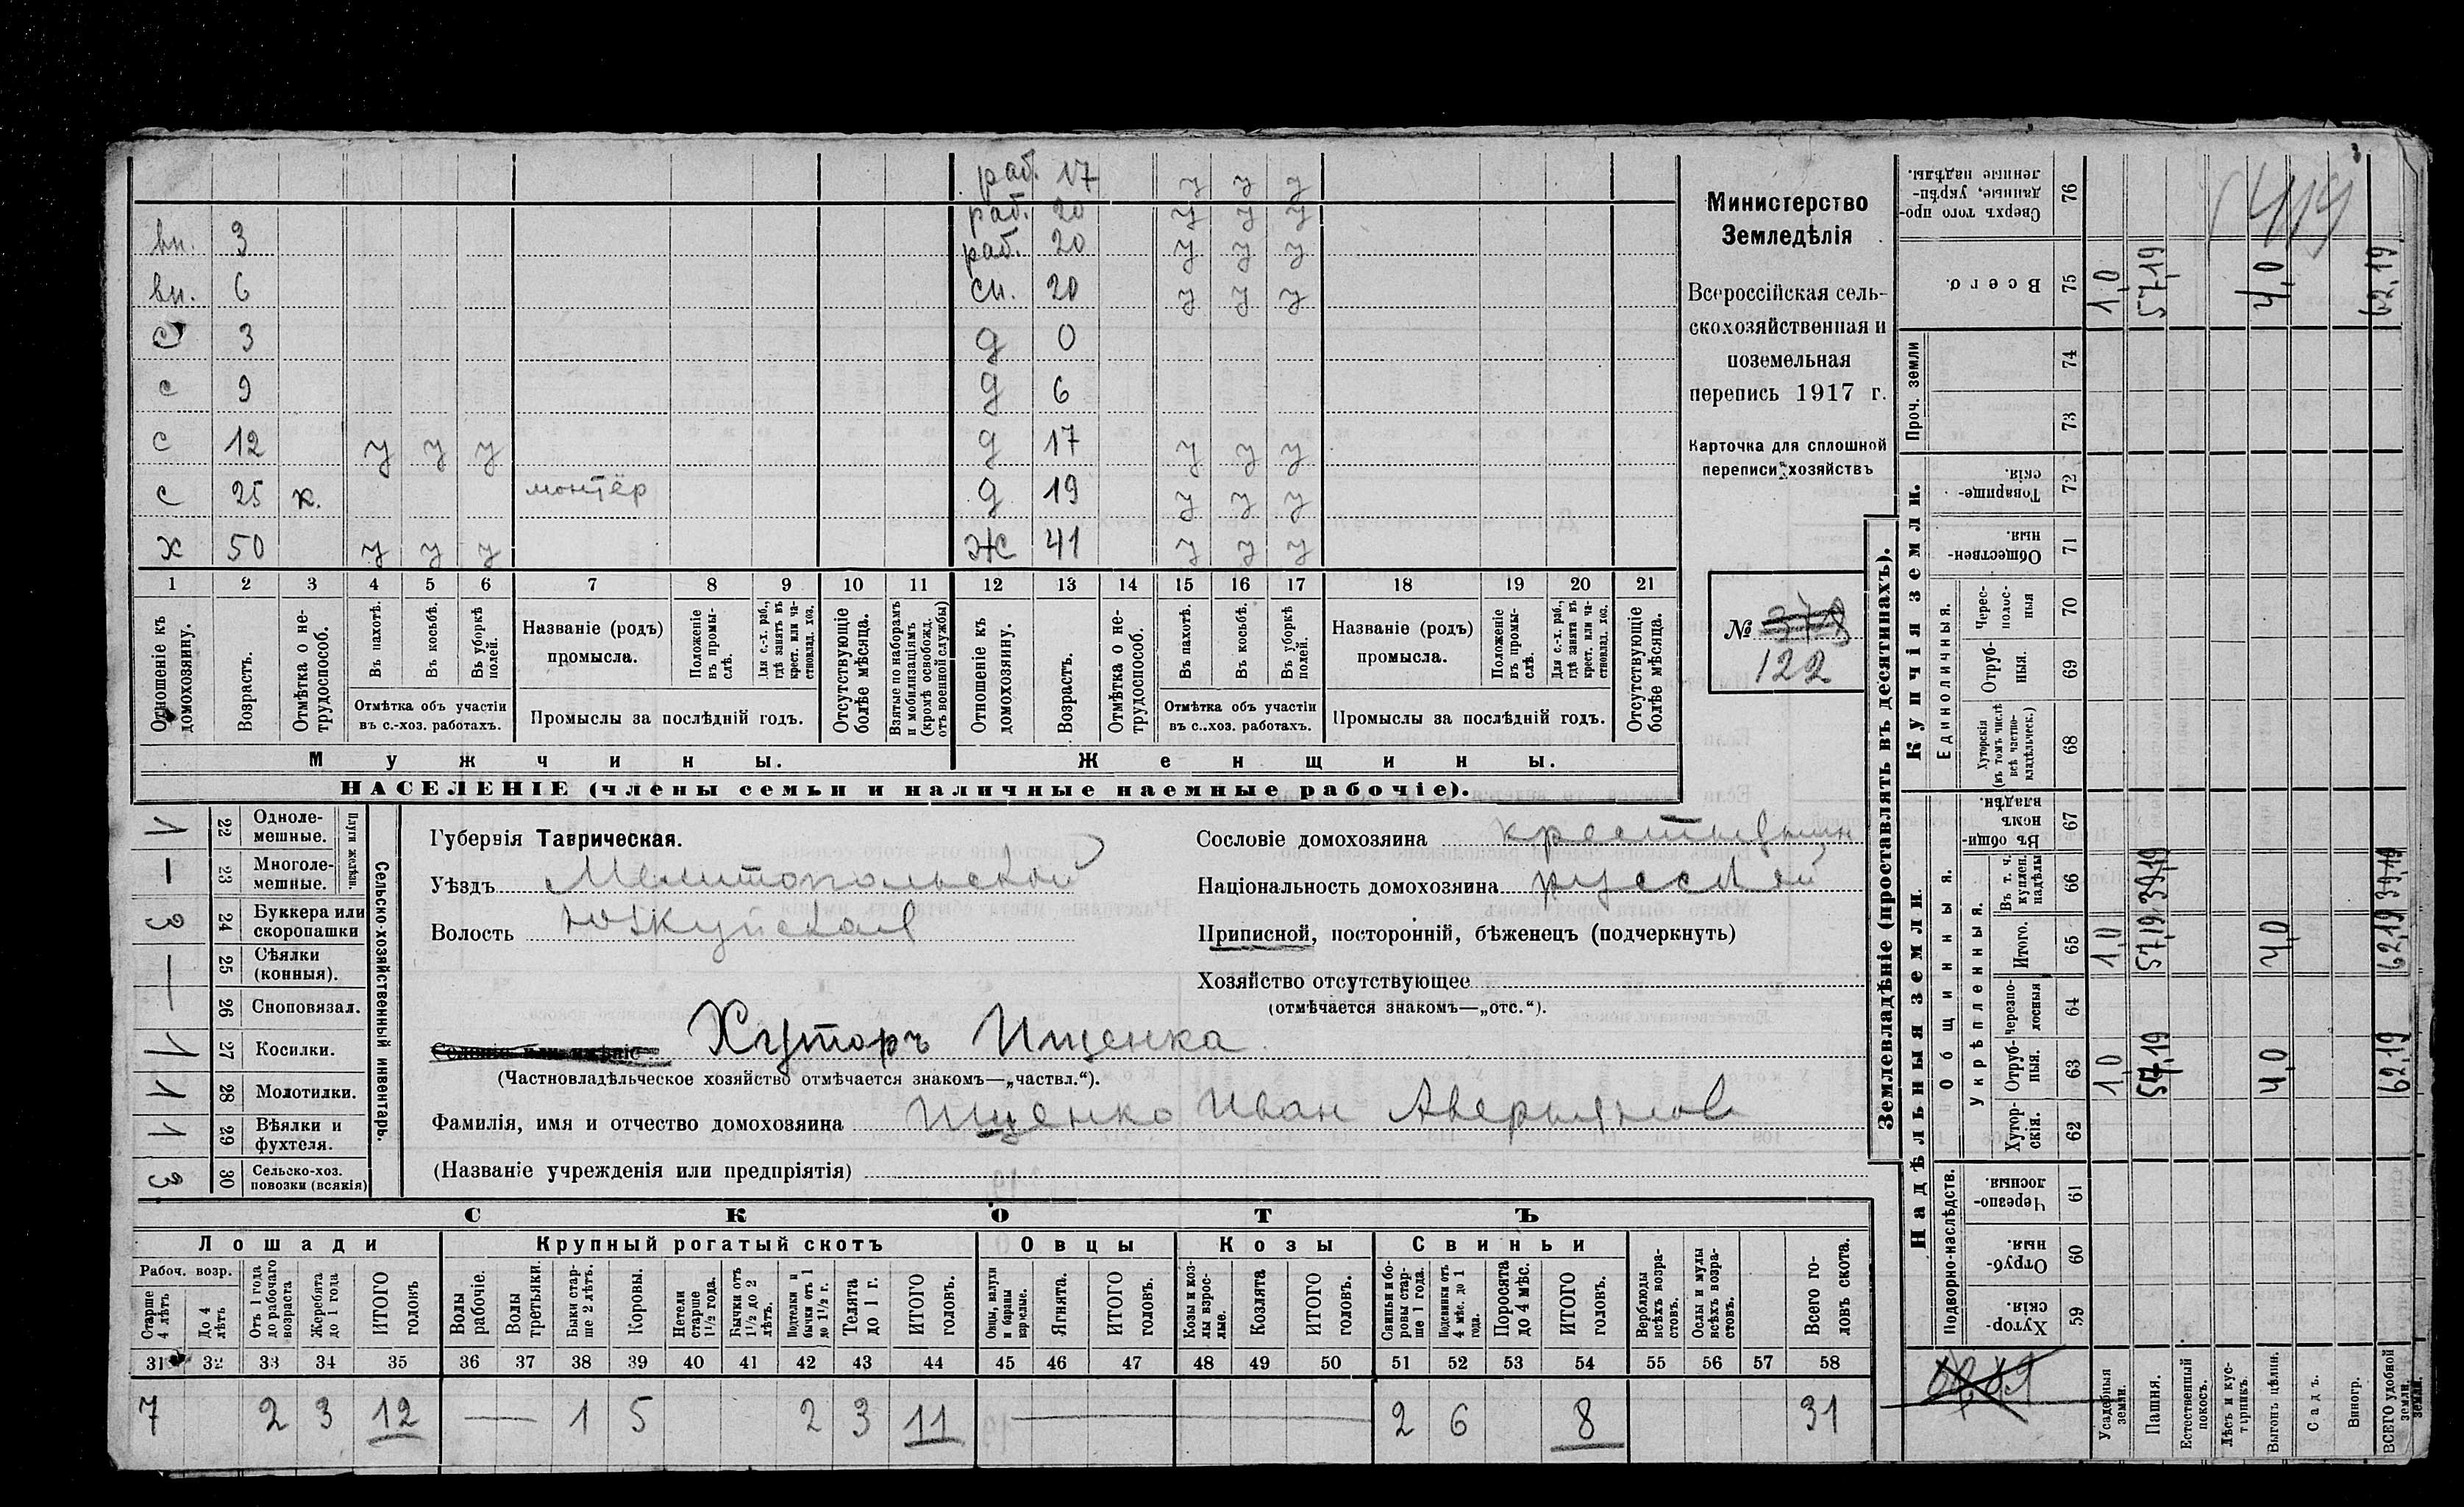 раб. 17 у у у
раб. 20 у у у
вн. 3 раб. 20 у у у
вн. 6 сн. 20 у у у
с 3 д 0
с 9 д 6
с 12 у у у д 17 у у у
с 25 к. монтёр д 19 у у у
х 50 у у у ж 41 у у у
1 2 3 4 5 6 7 8 9 10 11 12 13 14 15 16 17 18 19 20 21
Отношеніе къ домохозяину.
Возрастъ.
Отмѣтка о не-трудоспособ.
Въ пахотѣ.
Въ косьбѣ.
Въ уборкѣ полей.
Отмѣтка объ участіи
въ с.-хоз. работахъ.
Названіе (родъ)
промысла.
Положеніе въ промы-слѣ.
Для с.-х. раб., гдѣ занятъ въ крест. или ча-стновлад. хоз.
Промыслы за послѣдній годъ.
Отсутствующіе болѣе мѣсяца.
Взятые по наборамъ и мобилизаціямъ (кромѣ освобожд. отъ военной службы)
Отношеніе къ домохозяину.
Возрастъ.
Отмѣтка о не-трудоспособ.
Въ пахотѣ.
Въ косьбѣ.
Въ уборкѣ полей.
Отмѣтка объ участіи
въ с..хоз. работахъ.
Названіе (родъ)
промысла.
Положеніе въ промы-слѣ.
Для с.-х. раб., гдѣ занята въ крест. или ча-стновлад. хоз.
Промыслы за послѣдній годъ.
Отсутствующіе болѣе мѣсяца.
Мужчины. Женщины.
НАСЕЛЕНІЕ (члены семьи и наличные наемные рабочіе).
Министерство
Земледѣлія
Всероссійская сель-
скохозяйственная и
поземельная
перепись 1917 г.
Карточка для сплошной
переписи хозяйствъ
№ 378
122
1 22 Одноле-мешные.
— 23 Многоле-мешные.
Плуги желѣзн.
3 24 Буккера или скоропашки
— 25 Сѣялки (конныя).
26 Сноповязал.
1 27 Косилки.
1 28 Молотилки.
1 29 Вѣялки и фухтеля.
3 30 Сельско-хоз. повозки (всякія)
Сельско-хозяйственный инвентарь.
Губернія Таврическая.
Уѣздъ Мелитопольской
Волость Юзкуйская
Сословіе домохозяина крестьянин
Національность домохозяина русский
Приписной, посторонній, бѣженецъ (подчеркнуть)
Хозяйство отсутствующее
(отмѣчается знакомъ—„отс.“).
Селеніе или имѣніе Хуторъ Ищенка
(Частновладѣльческое хозяйство отмѣчается знакомъ—„частвл.“).
Фамилія, имя и отчество домохозяина Ищенко Иван Аверьянов
(Названіе учрежденія или предпріятія)
СКОТЪ
Лошади Крупный рогатый скотъ Овцы Козы Свиньи
Рабоч. возр.
Старше 4 лѣтъ
До 4 лѣтъ
Отъ 1 года до рабочаго возраста
Жеребята до 1 года
ИТОГО головъ
Волы рабочіе.
Волы третьяки.
Быки стар-ше 2 лѣтъ.
Коровы.
Нетели старше 1½ года.
Бычки отъ 1½ до 2 лѣтъ.
Подтелки и бычки отъ 1 до 1½ г.
Телята до 1 г.
ИТОГО головъ.
Овцы, валухи и бараны взрослые.
Ягнята.
ИТОГО головъ.
Козы и коз-лы взрос-лые.
Козлята
ИТОГО головъ.
Свиньи и бо-ровы стар-ше 1 года.
Подсвинки отъ 4 мѣс. до 1 года.
Поросята до 4 мѣс.
ИТОГО головъ.
Верблюды всѣхъ возра-стовъ.
Ослы и мулы всѣхъ возра-стовъ.
Всего го-ловъ скота.
31 32 33 34 35 36 37 38 39 40 41 42 43 44 45 46 47 48 49 50 51 52 53 54 55 56 57 58
7 2 3 12 — 1 5 2 3 11 — 2 6 8 31
Землевладѣніе (проставлять въ десятинахъ).
Надѣльныя земли. Купчія земли. Проч. земли
Подворно-наслѣдств.
Общинныя.
Укрѣпленныя.
Единоличныя.
Хутор-скія. 59
Отруб-ныя. 60
Черезпо-лосныя. 61
Хутор-скія. 62
Отруб-ныя. 63
Черезпо-лосныя 64
Итого. 65
Въ т. ч. куплен. надѣлы 66
Въ общи-номъ владѣн. 67
Хуторскія (въ томъ числѣ всѣ частно-владѣльческ.) 68
Отруб-ныя. 69
Черес-полос-ныя 70
Обществен-ныя. 71
Товарище-скія. 72
73
74
Всего. 75
Сверхъ того про-данные, укрѣп-ленные надѣлы. 76
Усадебныя земли. 1,0 1,0 1,0
Пашня. 57,19 57,19 39,19 57,19
Естественный покосъ.
Лѣсъ и кус-тарникъ.
Выгонъ цѣлин. 4,0 4,0 4,0
Садъ.
Виногр.
ВСЕГО удобной земли. 62,19 62,19 39,19 62,19
419